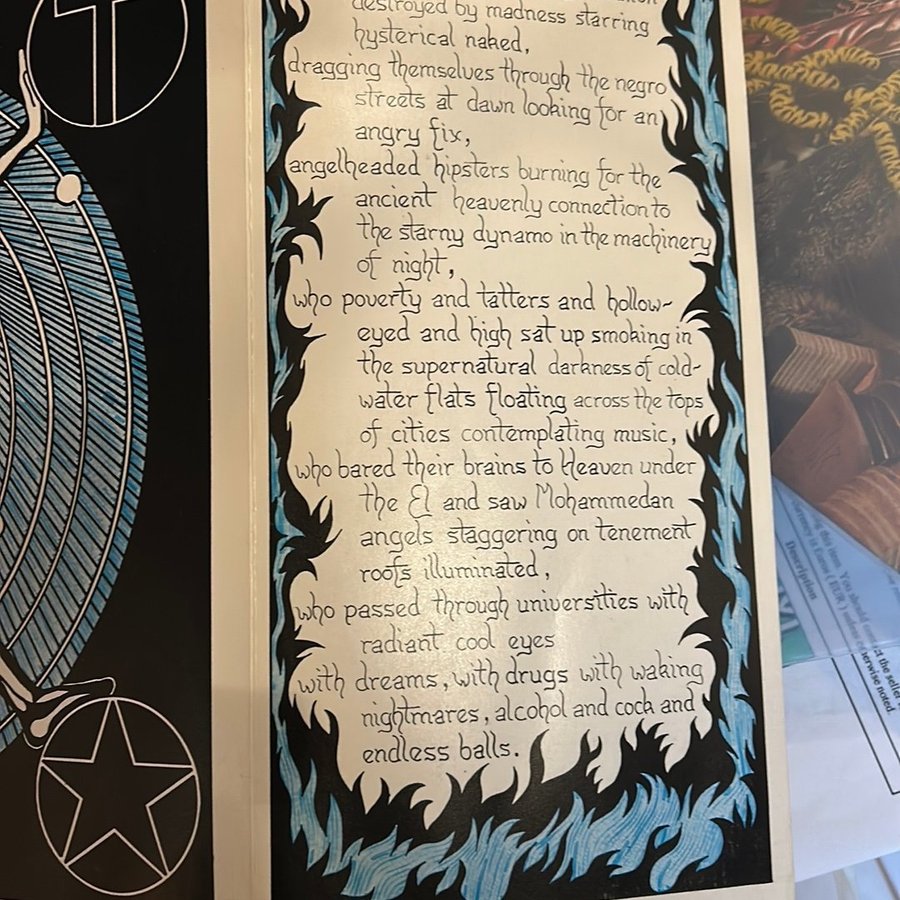 destroyed by madness starring
hysterical naked,
dragging themselves through the negro
streets at dawn looking for an
angry fix,
angelheaded hipsters burning for the
ancient heavenly connection to
the starny dynamo in the machinery
of night,
who poverty and tatters and hollow-
eyed and high sat up smoking in
the supernatural darkness of cold-
water flats floating across the tops
of cities contemplating music,
who bared their brains to Heaven under
the El and saw Mohammedan
angels staggering on tenement
roofs illuminated,
who passed through universities with
radiant cool eyes
with dreams, with drugs with waking
nightmares, alcohol and cock and
endless balls.
this item. You should
currency is Euros (EUR) unless
Description
the seller
herwise noted.